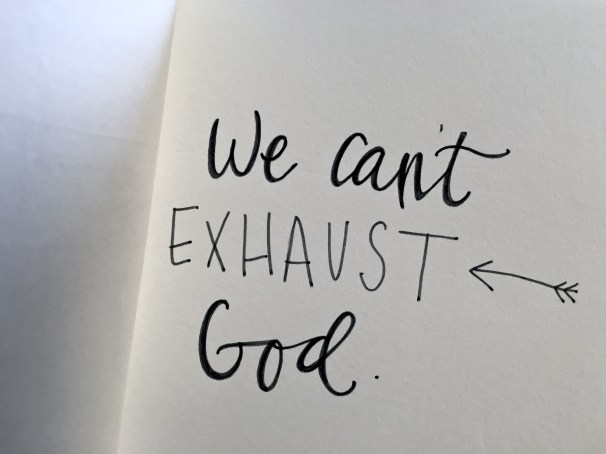 We can't
EXHAUST
God.